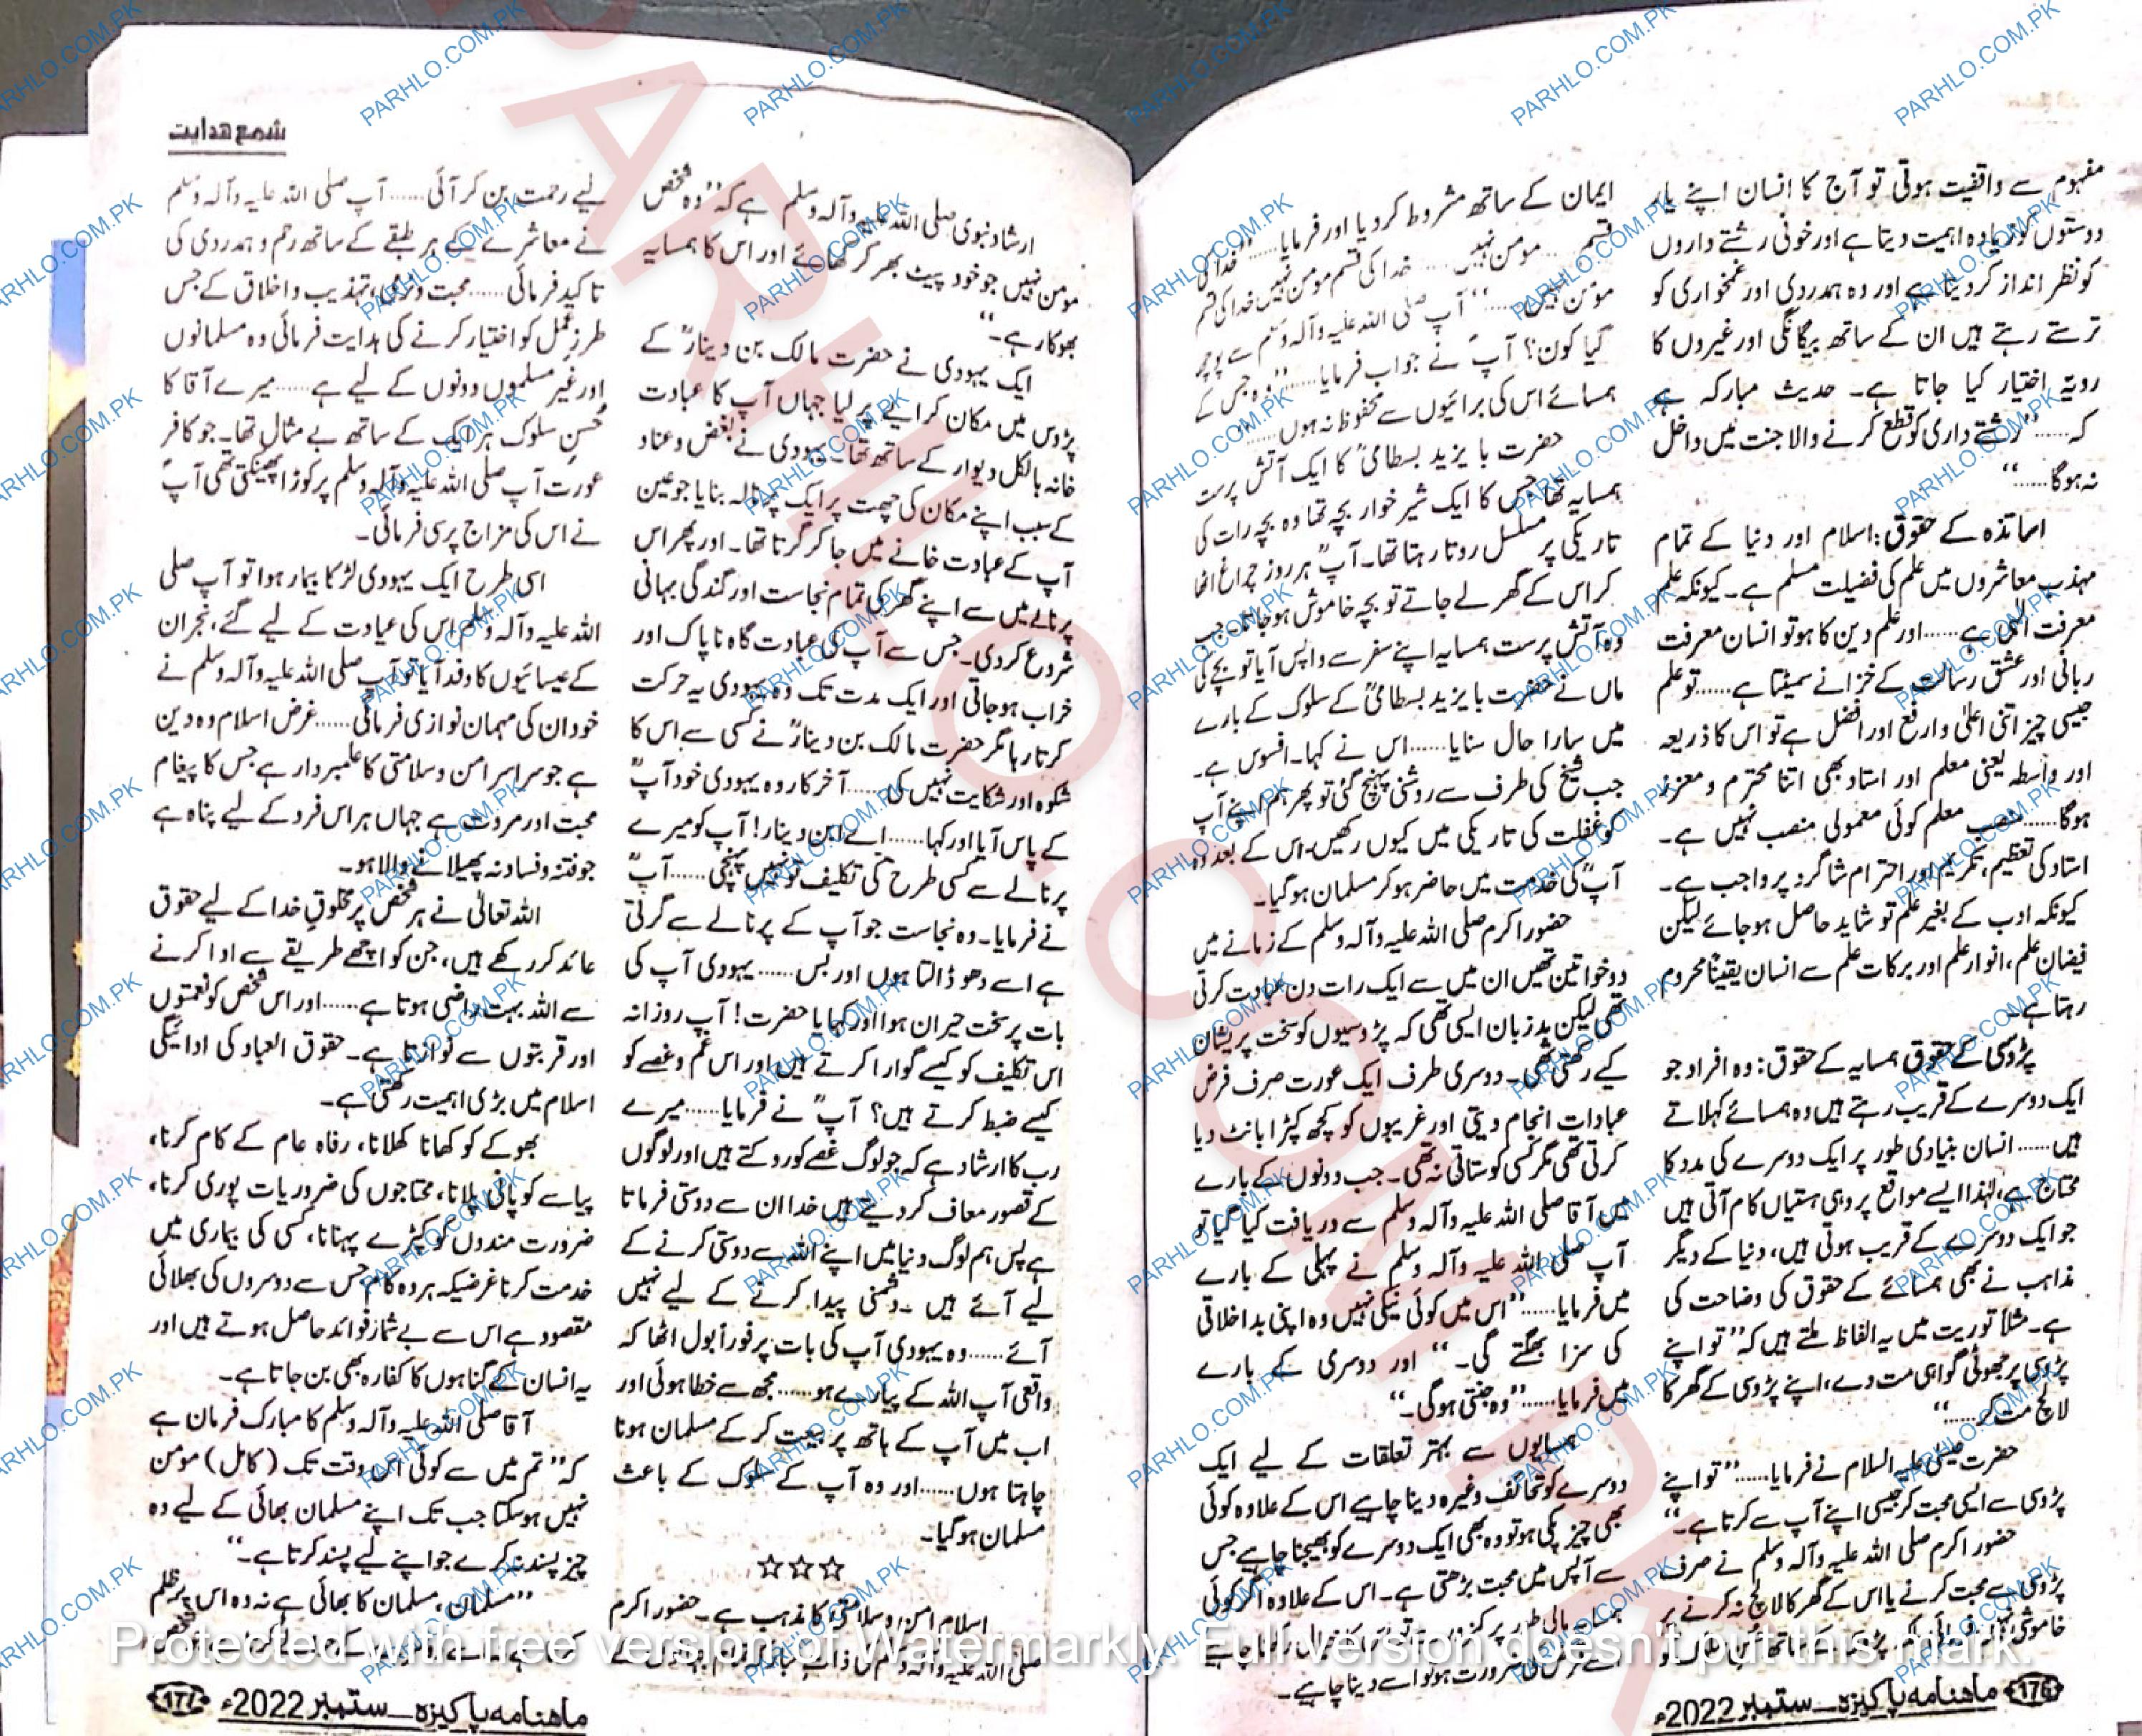 مفہوم سے واقفیت ہوتی تو آج کا انسان اپنے یار
دوستوں کو زیادہ اہمیت دیتا ہے اور خونی رشتے داروں
کو نظر انداز کر دیتا ہے اور وہ ہمدردی اور غمخواری کو
ترستے رہتے ہیں ان کے ساتھ بیگانگی اور غیروں کا
رویہ اختیار کیا جاتا ہے۔ حدیث مبارکہ ہے
کہ...... ”رشتے داری کو قطع کرنے والا جنت میں داخل
نہ ہوگا......“
اساتذہ کے حقوق: اسلام اور دنیا کے تمام
مہذب معاشروں میں علم کی فضیلت مسلم ہے۔ کیونکہ علم
معرفت الٰہی ہے...... اور علم دین کا ہو تو انسان معرفت
ربانی اور عشق رسالت کے خزانے سمیٹتا ہے...... تو علم
جیسی چیز اتنی اعلیٰ و ارفع اور افضل ہے تو اس کا ذریعہ
اور واسطہ یعنی معلم اور استاد بھی اتنا محترم و معزز
ہوگا...... منصب معلم کوئی معمولی منصب نہیں ہے۔
استاد کی تعظیم، تکریم اور احترام شاگرد پر واجب ہے۔
کیونکہ ادب کے بغیر علم تو شاید حاصل ہو جائے لیکن
فیضان علم، انوار علم اور برکات علم سے انسان یقیناً محروم
رہتا ہے۔
پڑوسی کے حقوق ہمسایہ کے حقوق: وہ افراد جو
ایک دوسرے کے قریب رہتے ہیں وہ ہمسائے کہلاتے
ہیں...... انسان بنیادی طور پر ایک دوسرے کی مدد کا
محتاج ہے، لہٰذا ایسے مواقع پر وہی ہستیاں کام آتی ہیں
جو ایک دوسرے کے قریب ہوتی ہیں، دنیا کے دیگر
مذاہب نے بھی ہمسائے کے حقوق کی وضاحت کی
ہے۔ مثلاً توریت میں یہ الفاظ ملتے ہیں کہ ”تو اپنے
پڑوسی پر جھوٹی گواہی مت دے، اپنے پڑوسی کے گھر کا
لالچ مت کر......“
حضرت عیسیٰ علیہ السلام نے فرمایا...... ”تو اپنے
پڑوسی سے ایسی محبت کر جیسی اپنے آپ سے کرتا ہے۔“
حضور اکرم صلی اللہ علیہ وآلہ وسلم نے صرف
پڑوسی سے محبت کرنے یا اس کے گھر کا لالچ نہ کرنے پر
خاموشی
176 ماہنامہ پاکیزہ ــ ستمبر 2022ء
ایمان کے ساتھ مشروط کر دیا اور فرمایا...... ”خدا کی
قسم ... مومن نہیں .... خدا کی قسم مومن نہیں خدا کی قسم
مومن نہیں......“ آپ صلی اللہ علیہ وآلہ وسلم سے پوچھ
گیا کون؟ آپؐ نے جواب فرمایا...... ”وہ جس کے
ہمسائے اس کی برائیوں سے محفوظ نہ ہوں......“
حضرت بایزید بسطامیؒ کا ایک آتش پرست
ہمسایہ تھا جس کا ایک شیر خوار بچہ تھا وہ بچہ رات کی
تاریکی پر مسلسل روتا رہتا تھا۔ آپؒ ہر روز چراغ اٹھا
کر اس کے گھر لے جاتے تو بچہ خاموش ہو جاتا۔ جب
وہ آتش پرست ہمسایہ اپنے سفر سے واپس آیا تو بچے کی
ماں نے حضرت بایزید بسطامیؒ کے سلوک کے بارے
میں سارا حال سنایا...... اس نے کہا۔ افسوس ہے۔
جب شیخ کی طرف سے روشنی پہنچ گئی تو پھر ہم اپنے آپ
کو غفلت کی تاریکی میں کیوں رکھیں، اس کے بعد وہ
آپؒ کی خدمت میں حاضر ہو کر مسلمان ہوگیا۔
حضور اکرم صلی اللہ علیہ وآلہ وسلم کے زمانے میں
دو خواتین تھیں ان میں سے ایک رات دن عبادت کرتی
تھی لیکن بد زبان ایسی تھی کہ پڑوسیوں کو سخت پریشان
کیے رکھتی تھی۔ دوسری طرف ایک عورت صرف فرض
عبادات انجام دیتی اور غریبوں کو کچھ کپڑا بانٹ دیا
کرتی تھی مگر کسی کو ستاتی نہ تھی۔ جب دونوں کے بارے
میں آقا صلی اللہ علیہ وآلہ وسلم سے دریافت کیا گیا تو
آپ صلی اللہ علیہ وآلہ وسلم نے پہلی کے بارے
میں فرمایا...... ”اس میں کوئی نیکی نہیں وہ اپنی بداخلاقی
کی سزا بھگتے گی۔“ اور دوسری کے بارے
میں فرمایا...... ”وہ جنتی ہوگی۔“
ہمسایوں سے بہتر تعلقات کے لیے ایک
دوسرے کو تحائف وغیرہ دینا چاہیے اس کے علاوہ کوئی
بھی چیز پکی ہو تو وہ بھی ایک دوسرے کو بھیجنا چاہیے جس
سے آپس میں محبت بڑھتی ہے۔ اس کے علاوہ اگر کوئی
ہمسایہ مالی طور پر کمزور
ضرورت ہو تو اسے دینا چاہیے۔
شمع ہدایت
ارشاد نبوی صلی اللہ علیہ وآلہ وسلم ہے کہ ”وہ شخص
مومن نہیں جو خود پیٹ بھر کر کھائے اور اس کا ہمسایہ
بھوکا رہے۔“
ایک یہودی نے حضرت مالک بن دینارؒ کے
پڑوس میں مکان کرایے پر لیا جہاں آپ کا عبادت
خانہ بالکل دیوار کے ساتھ تھا۔ یہودی نے بغض و عناد
کے سبب اپنے مکان کی چھت پر ایک پرنالہ بنایا جو عین
آپ کے عبادت خانے میں جا کر گرتا تھا۔ اور پھر اس
پرنالے میں سے اپنے گھر کی تمام نجاست اور گندگی بہانی
شروع کر دی۔ جس سے آپ کی عبادت گاہ ناپاک اور
خراب ہو جاتی اور ایک مدت تک وہ یہودی یہ حرکت
کرتا رہا مگر حضرت مالک بن دینارؒ نے کسی سے اس کا
شکوہ اور شکایت نہیں کی...... آخر کار وہ یہودی خود آپؒ
کے پاس آیا اور کہا...... اے ابن دینار! آپ کو میرے
پرنالے سے کسی طرح کی تکلیف تو نہیں پہنچی...... آپؒ
نے فرمایا۔ وہ نجاست جو آپ کے پرنالے سے گرتی
ہے اسے دھو ڈالتا ہوں اور بس...... یہودی آپ کی
بات پر سخت حیران ہوا اور کہا یا حضرت! آپ روزانہ
اس تکلیف کو کیسے گوارا کرتے ہیں اور اس غم و غصے کو
کیسے ضبط کرتے ہیں؟ آپؒ نے فرمایا...... میرے
رب کا ارشاد ہے کہ جو لوگ غصے کو روکتے ہیں اور لوگوں
کے قصور معاف کر دیتے ہیں خدا ان سے دوستی فرماتا
ہے پس ہم لوگ دنیا میں اپنے اللہ سے دوستی کرنے کے
لیے آئے ہیں۔ دشمنی پیدا کرنے کے لیے نہیں
آئے...... وہ یہودی آپ کی بات پر فوراً بول اٹھا کہ
واقعی آپ اللہ کے پیارے ہو...... مجھ سے خطا ہوئی اور
اب میں آپ کے ہاتھ پر بیعت کر کے مسلمان ہونا
چاہتا ہوں...... اور وہ آپ کے سلوک کے باعث
مسلمان ہوگیا۔
☆☆☆
اسلام امن و سلامتی کا مذہب ہے۔ حضور اکرم
صلی اللہ علیہ وآلہ وسلم کی ذات
لیے رحمت بن کر آئی...... آپ صلی اللہ علیہ وآلہ وسلم
نے معاشرے کے ہر طبقے کے ساتھ رحم و ہمدردی کی
تاکید فرمائی...... محبت و نرمی، تہذیب و اخلاق کے جس
طرز عمل کو اختیار کرنے کی ہدایت فرمائی وہ مسلمانوں
اور غیر مسلموں دونوں کے لیے ہے...... میرے آقا کا
حسن سلوک ہر ایک کے ساتھ بے مثال تھا۔ جو کافر
عورت آپ صلی اللہ علیہ وآلہ وسلم پر کوڑا پھینکتی تھی آپؐ
نے اس کی مزاج پرسی فرمائی۔
اسی طرح ایک یہودی لڑکا بیمار ہوا تو آپ صلی
اللہ علیہ وآلہ وسلم اس کی عیادت کے لیے گئے، نجران
کے عیسائیوں کا وفد آیا تو آپ صلی اللہ علیہ وآلہ وسلم نے
خود ان کی مہمان نوازی فرمائی...... غرض اسلام وہ دین
ہے جو سراسر امن و سلامتی کا علمبردار ہے جس کا پیغام
محبت اور مروت ہے جہاں ہر اس فرد کے لیے پناہ ہے
جو فتنہ و فساد نہ پھیلانے والا ہو۔
اللہ تعالیٰ نے ہر شخص پر مخلوق خدا کے لیے حقوق
عائد کر رکھے ہیں، جن کو اچھے طریقے سے ادا کرنے
سے اللہ بہت راضی ہوتا ہے...... اور اس شخص کو نعمتوں
اور قربتوں سے نوازتا ہے۔ حقوق العباد کی ادائیگی
اسلام میں بڑی اہمیت رکھتی ہے۔
بھوکے کو کھانا کھلانا، رفاہ عام کے کام کرنا،
پیاسے کو پانی پلانا، محتاجوں کی ضروریات پوری کرنا،
ضرورت مندوں کو کپڑے پہنانا، کسی کی بیماری میں
خدمت کرنا غرضیکہ ہر وہ کام جس سے دوسروں کی بھلائی
مقصود ہے اس سے بے شمار فوائد حاصل ہوتے ہیں اور
یہ انسان کے گناہوں کا کفارہ بھی بن جاتا ہے۔
آقا صلی اللہ علیہ وآلہ وسلم کا مبارک فرمان ہے
کہ ”تم میں سے کوئی اس وقت تک (کامل) مومن
نہیں ہوسکتا جب تک اپنے مسلمان بھائی کے لیے وہ
چیز پسند نہ کرے جو اپنے لیے پسند کرتا ہے۔“
”مسلمان، مسلمان کا بھائی ہے نہ وہ اس پر ظلم
ماہنامہ پاکیزہ ــ ستمبر 2022ء 177
PARHLO.COM.PK
Protected with free version of Watermarkly. Full version doesn't put this mark.